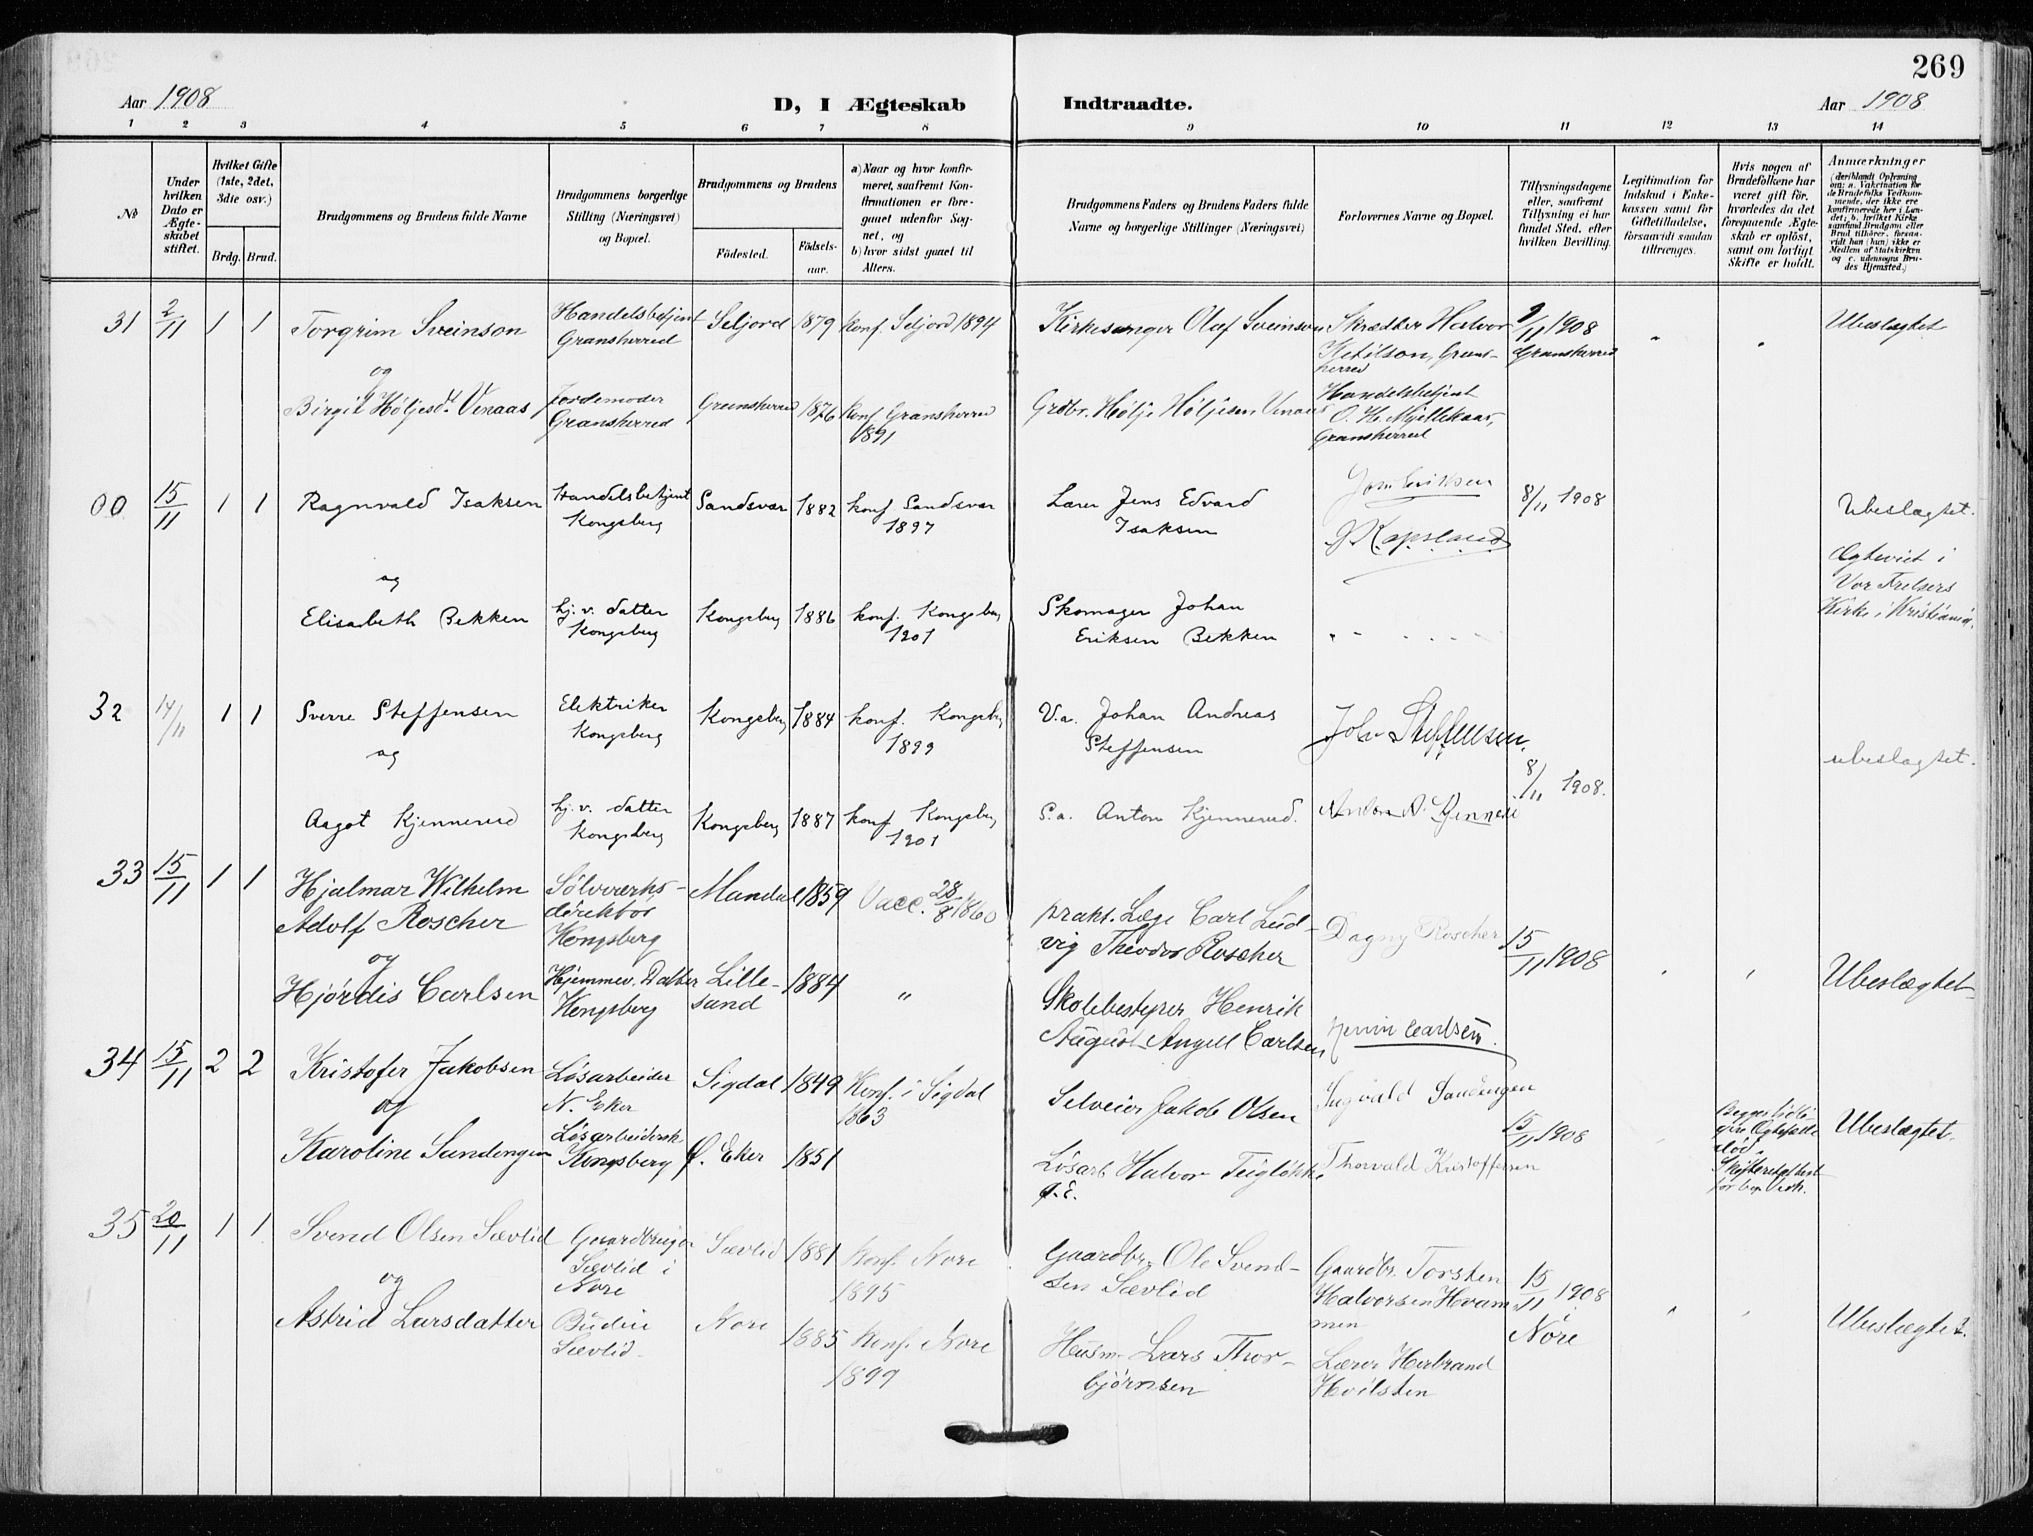 269
Aar 1908
D, I Ægteskab Indtraadte.
Aar 1908
1 2 3 4 5 6 7 8 9 10 11 12 13 14
No
Under hvilken Dato er Ægteskabet stiftet.
Hvilket Gifte (1ste, 2det, 3die osv.)
Brdg. Brud.
Brudgommens og Brudens fulde Navne
Brudgommens borgerlige
Stilling (Næringsvei)
og Bopæl.
Brudgommens og Brudens
Fødested. Fødselsaar.
a) Naar og hvor konfirmeret, saafremt Konfirmationen er foregaaet udenfor Sognet, og
b) hvor sidst gaaet til Alters.
Brudgommens Faders og Brudens Faders fulde
Navne og borgerlige Stillinger (Næringsvei)
Forlovernes Navne og Bopæl.
Tillysningsdagene eller, saafremt Tillysning ei har fundet Sted, efter hvilken Bevilling.
Legitimation for Indskud i Enkekassen samt for Giftetilladelse, forsaavidt saadan tiltrænges.
Hvis nogen af Brudefolkene har været gift før, hvorledes da det foregaaende Ægteskab er opløst, samt om lovligt Skifte er holdt.
Anmærkninger
(deriblandt Oplysning om: a. Vakcination for de Brudefolks Vedkommende, der ikke ere konfirmerede her i Landet; b. hvilket Kirkesamfund Brudgom eller Brud tilhører, forsaavidt han (hun) ikke er Medlem af Statskirken og c. udensogns Brudes Hjemsted.)
31 2/11 1 1 Torgrim Sveinson Handelsbetjent Gransherred Seljord 1879 Konf. Seljord 1894 Kirkesanger Olaf Sveinson Skrædder Halvor Ketilson, Gransherred 1908 Gransherred Ubeslægtet
og
Birgit Høljesdt. Venaas Jordemoder Gransherred Gransherred 1876 Konf Gransherred 1891 Grdbr. Hølje Høljesen Venaas Handelsbetjent O. H. Mjellekaas, Gransherred
00 15/11 1 1 Ragnvald Isaksen Handelsbetjent Kongsberg Sandsvær 1882 konf Sandsvær 1897 Lærer Jens Edvard Isaksen 8/11 1908 Ubeslægtet.
Ægteviet i
Vor Frelsers
Kirke i Kristiania.
og
Elisabeth Bekken hj. v. datter Kongsberg Kongsberg 1886 konf. Kongsberg 1901 Skomager Johan Eriksen Bekken
32 14/11 1 1 Sverre Steffensen Elektriker Kongsberg Kongsberg 1884 konf. Kongsberg 1899 V.a. Johan Andreas Steffensen Joh. Steffensen. 8/11 1908. ubeslægtet.
og
Aagot Kjennerud hj. v. datter Kongsberg Kongsberg 1887 konf Kongsberg 1901 S.a. Anton Kjennerud.
33 15/11 1 1 Hjalmar Wilhelm Adolf Roscher Sølvværksdirektør Kongsberg Mandal 1859 Vacc. 28/8 1860 prakt. Læge Carl Ludvig Theodor Roscher Dagny Roscher 15/11 1908 Ubeslægtet
og
Hjørdis Carlsen Hjemmev. Datter Kongsberg Lillesand 1884 " Skolebestyrer Henrik August Angell Carlsen Carlsen.
34 15/11 2 2 Kristofer Jakobsen Løsarbeider N. Eker Sigdal 1849 Konf. i Sigdal 1863 Selveier Jakob Olsen Ingvald Sandengen 15/11 1908 Ubeslægtet.
og
Karoline Sandengen Løsarbeiderske Kongsberg Ø. Eker 1851 Løsarb. Halvor Teigløkke Ø. E. Thorvald Kristoffersen
35 20/11 1 1 Svend Olsen Sævlid Gaardbruger Sævlid i Nore Sævlid 1881 Konf. Nore 1895 Gaardbr. Ole Svendsen Sævlid Gaardbr. Torsten Halvorsen Hvammen 15/11 1908 Nore Ubeslægtet.
og
Astrid Larsdatter Budeie Sævlid. Nore 1885 Konf. Nore 1899 Husm. Lars Thorbjørnsen Lærer Herbrand Hvilsten